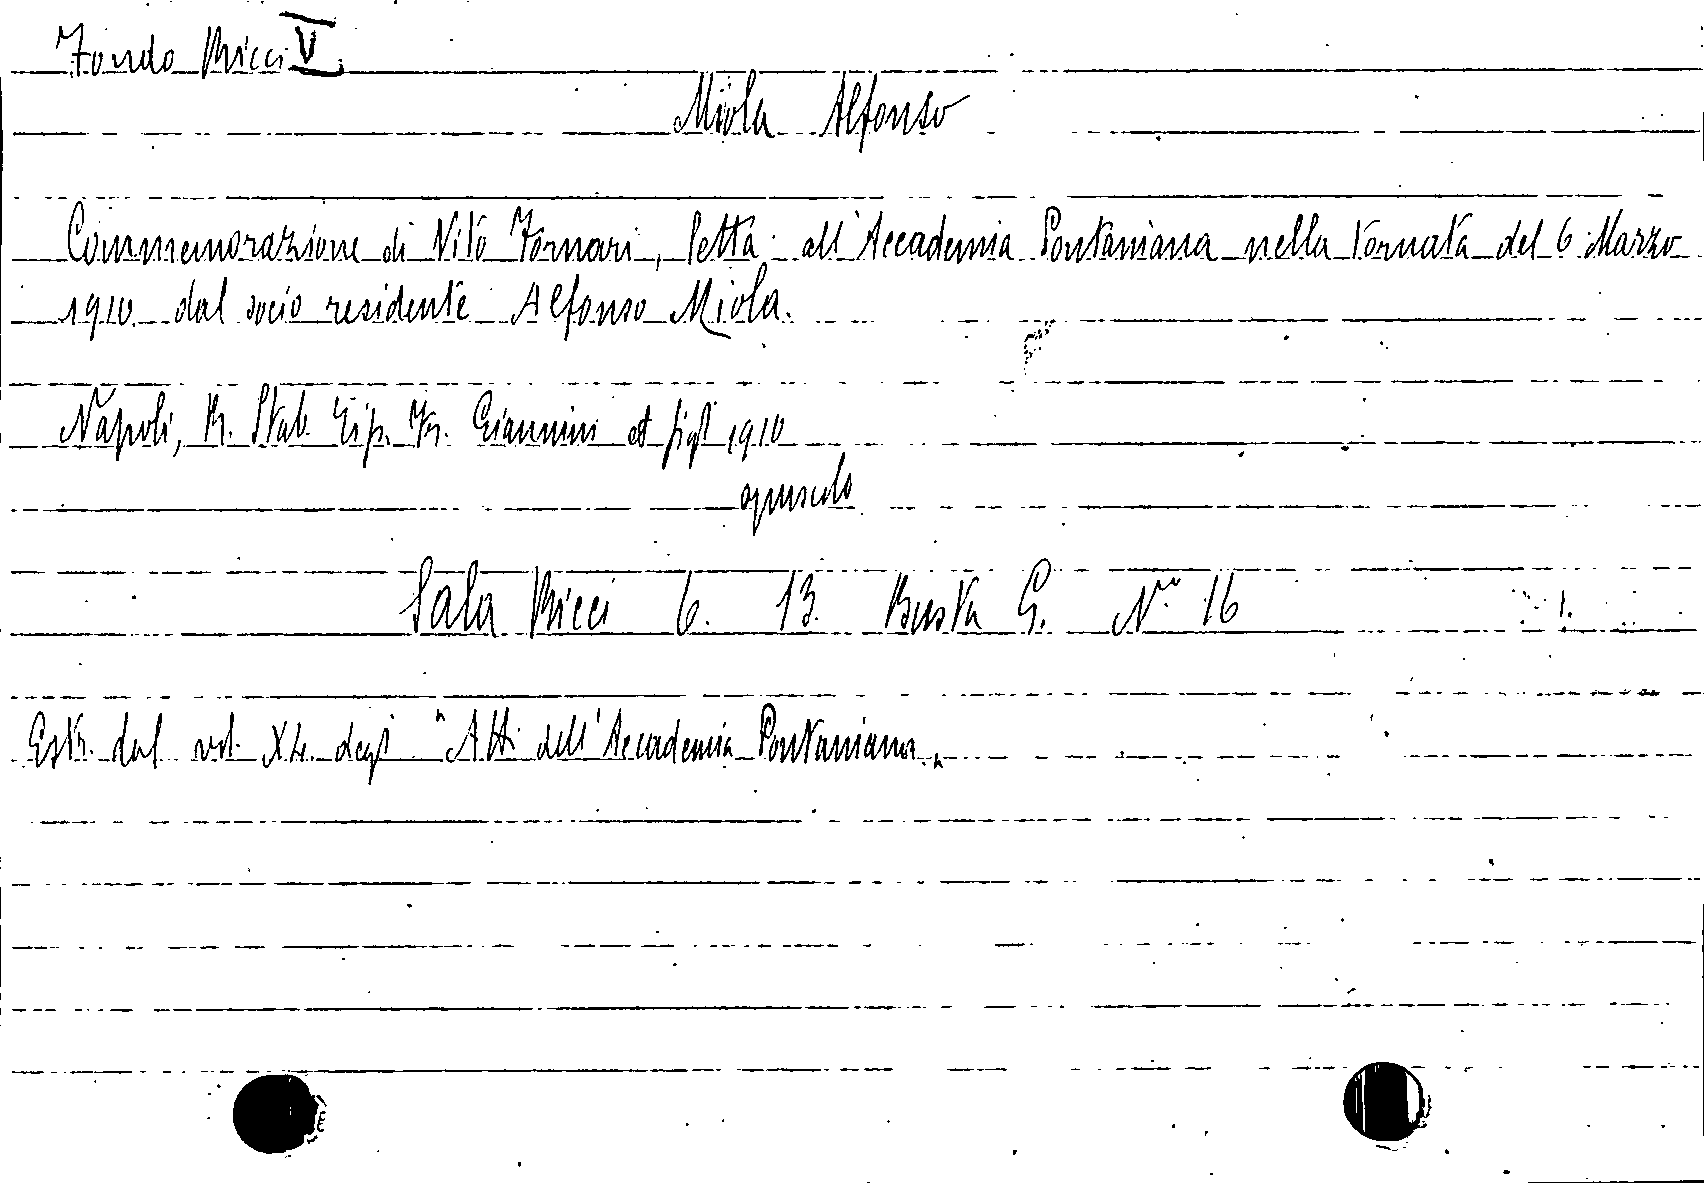 Fondo Ricci V
Miola Alfonso
Commemorazione di Vito Fornari, letta all'Accademia Pontaniana nella tornata del 6 Marzo
1910 dal socio residente Alfonso Miola.
Napoli, R. Stab. Tip. Fr. Giannini et figl 1910
opuscolo
Sala Ricci 6. 13. Busta G. N° 16
Estr. dal vol. XL. degl "Atti dell'Accademia Pontaniana"